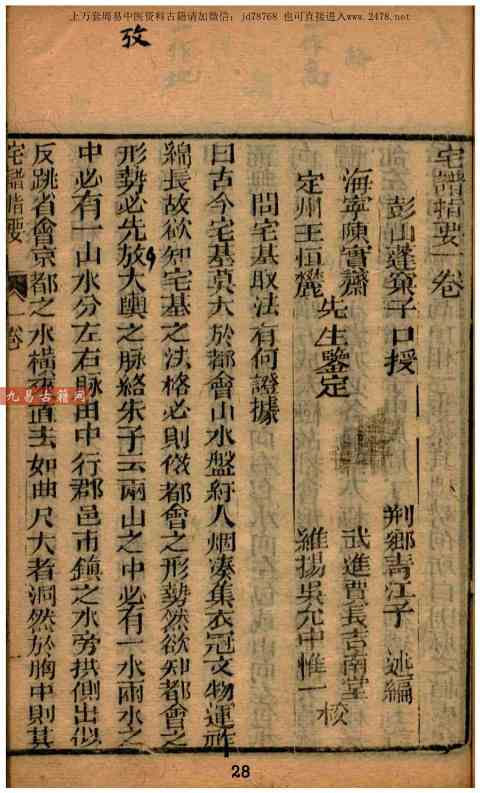 上万套周易中医资料古籍请加微信：jd78768 也可直接进入www.2478.net
攷
宅譜指要一卷
彭山蓬窠子口授 荆鄉青江子 述編
海寧陳實齋 武進賈長吉南堂
定州王恒麓 先生鑒定 維揚吳允中惟一 校
問宅基取法有何證據
曰古今宅基莫大於都會山水盤紆人烟湊集衣冠文物運祚
綿長故欲知宅基之法格必則傚都會之形勢然欲知都會之
形勢必先放大輿之脉絡朱子云兩山之中必有一水兩水之
中必有一山水分左右脉由中行郡邑市鎮之水旁拱側出似
反跳省會京都之水橫來直去如曲尺大者洞然於胸中則其
宅譜指要 一卷
九易古籍网
28